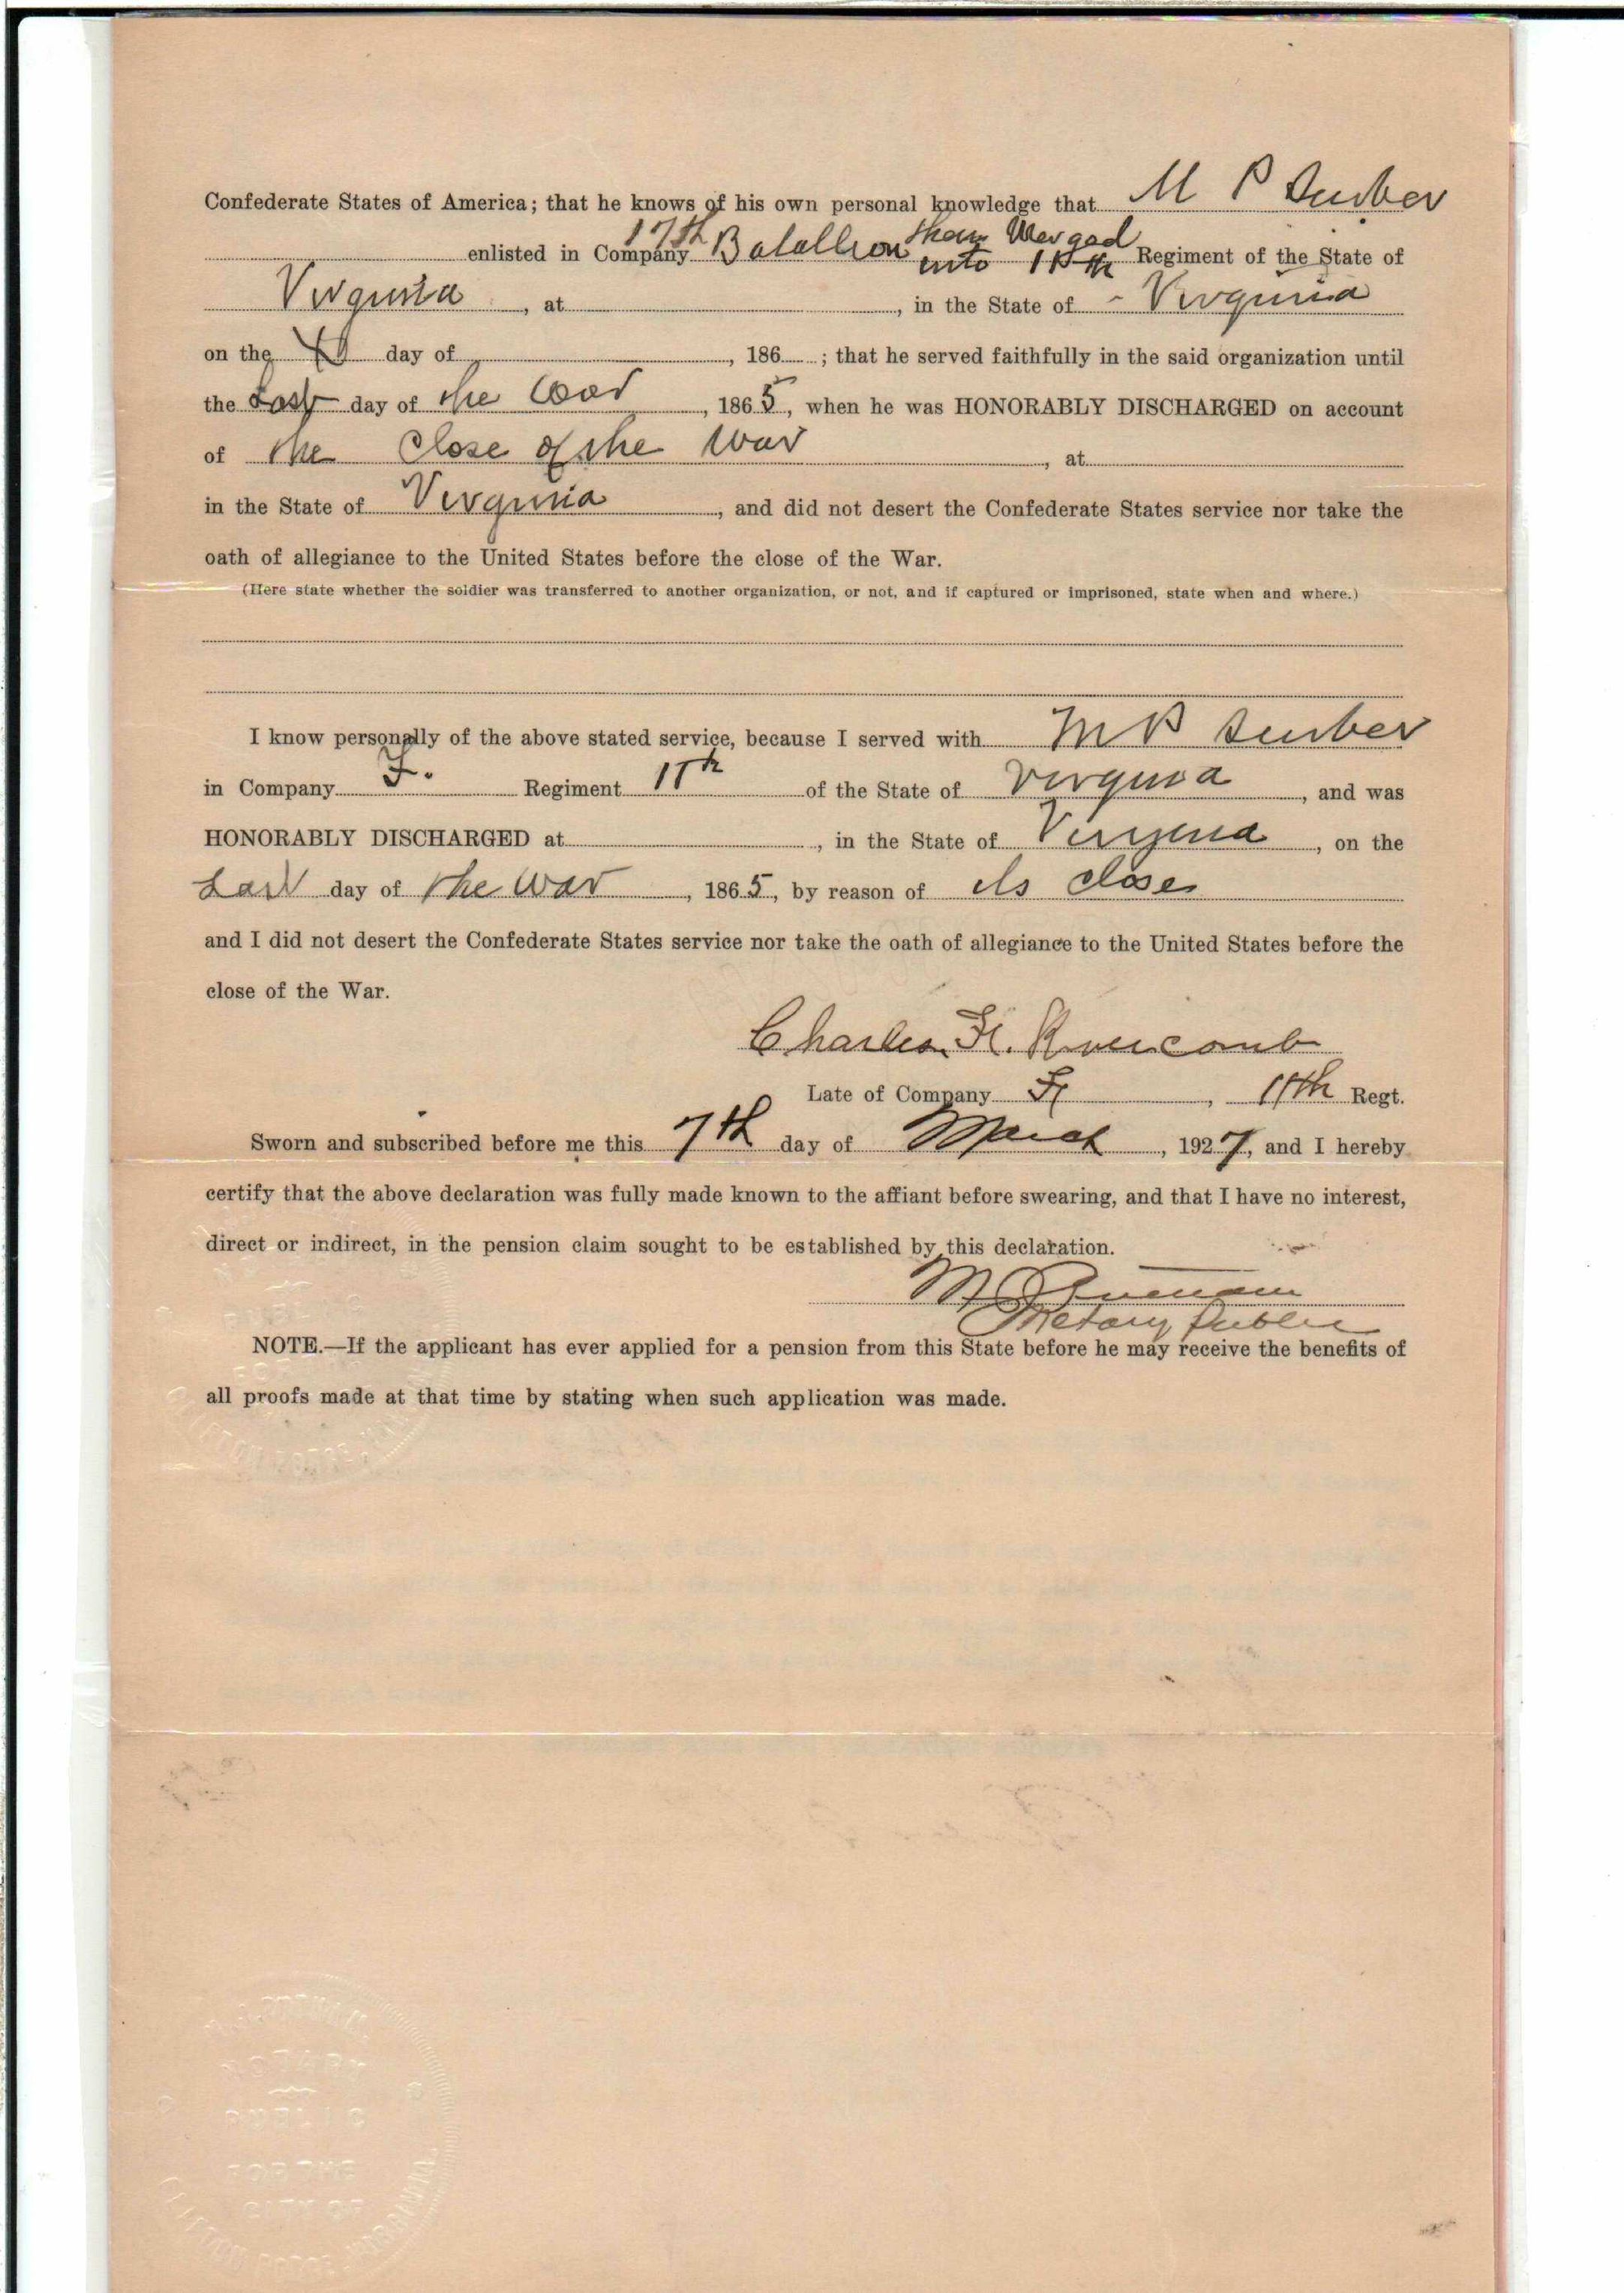 Confederate States of America; that he knows of his own personal knowledge that M P
enlisted in Company 17th Batallion then Merged into 11th Regiment of the State of
Virginia, at , in the State of - Virginia
on the day of , 186 ; that he served faithfully in the said organization until
the Last day of the War, 1865, when he was HONORABLY DISCHARGED on account
of the Close of the War, at
in the State of Virginia, and did not desert the Confederate States service nor take the
oath of allegiance to the United States before the close of the War.
(Here state whether the soldier was transferred to another organization, or not, and if captured or imprisoned, state when and where.)
I know personally of the above stated service, because I served with M P
in Company F. Regiment 11th of the State of Virginia, and was
HONORABLY DISCHARGED at , in the State of Virginia, on the
Last day of the War, 1865, by reason of its close
and I did not desert the Confederate States service nor take the oath of allegiance to the United States before the
close of the War.
Charles H. Revercomb
Late of Company F, 11th Regt.
Sworn and subscribed before me this 7th day of March, 1927, and I hereby
certify that the above declaration was fully made known to the affiant before swearing, and that I have no interest,
direct or indirect, in the pension claim sought to be established by this declaration.
Notary Public
NOTE.—If the applicant has ever applied for a pension from this State before he may receive the benefits of
all proofs made at that time by stating when such application was made.
NOTARY
PUBLIC
FOR THE
CITY OF